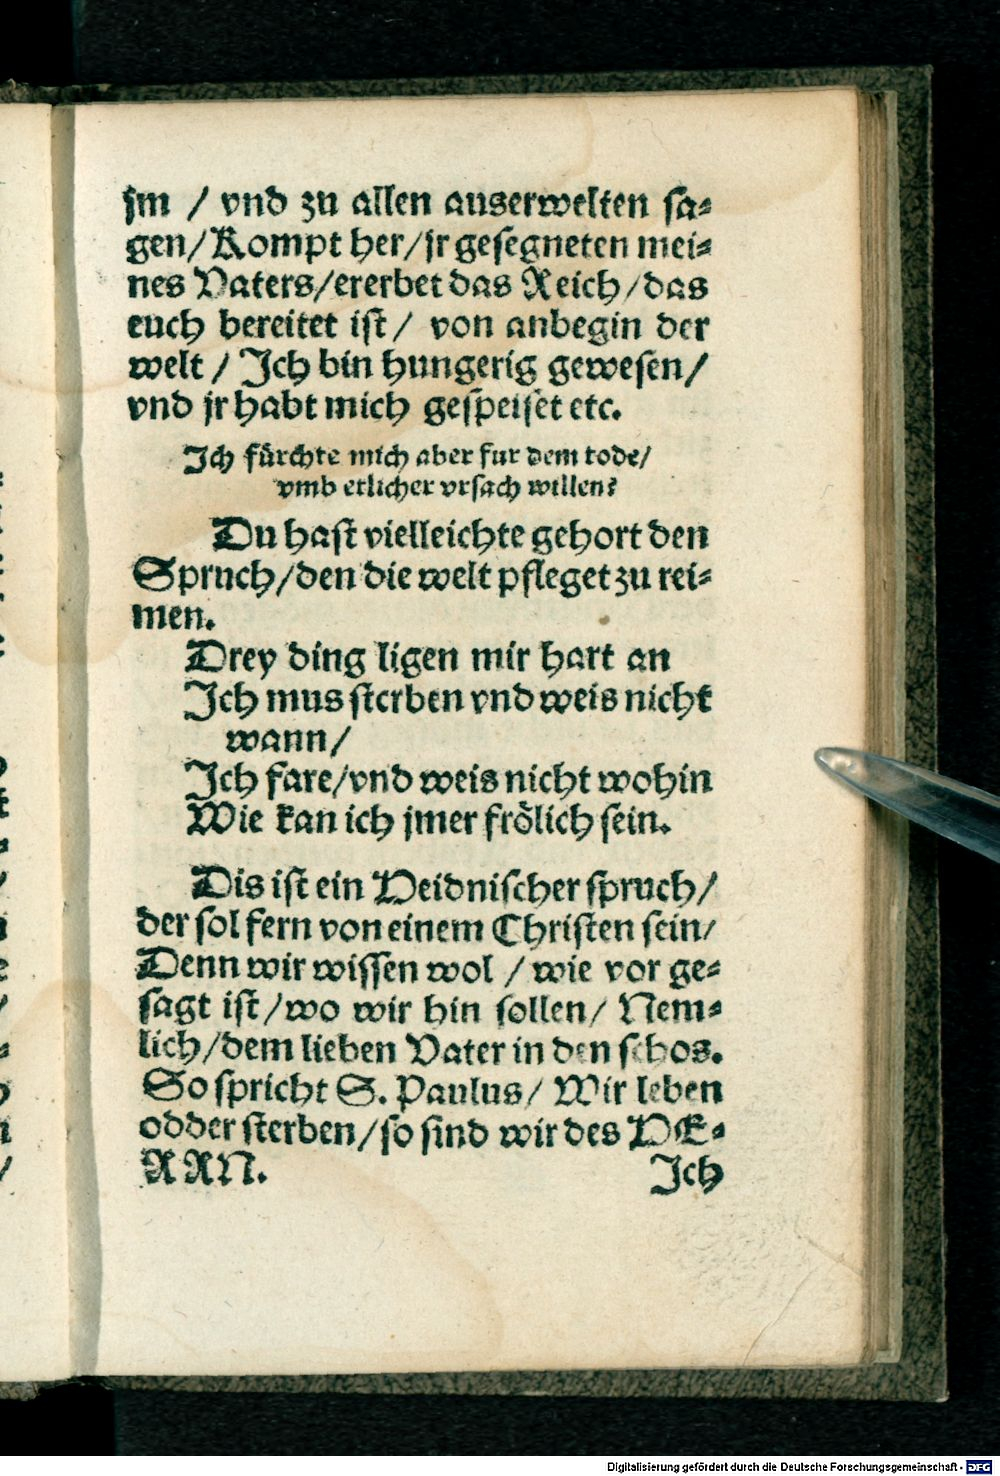 jm / vnd zu allen auserwelten sa⸗
gen/ Kompt her/ jr gesegneten mei⸗
nes Vaters/ ererbet das Reich/ das
euch bereitet ist/ von anbegin der
welt / Ich bin hungerig gewesen/
vnd jr habt mich gespeiset etc.
Ich fürchte mich aber fur dem tode/
vmb etlicher vrsach willen?
Du hast vielleichte gehort den
Spruch/ den die welt pfleget zu rei⸗
men.
Drey ding ligen mir hart an
Ich mus sterben vnd weis nicht
wann/
Ich fare/ vnd weis nicht wohin
Wie kan ich jmer frölich sein.
Dis ist ein Heidnischer spruch/
der sol fern von einem Christen sein/
Denn wir wissen wol / wie vor ge⸗
sagt ist/ wo wir hin sollen/ Nem⸗
lich/ dem lieben Vater in den schos.
So spricht S. Paulus/ Wir leben
odder sterben/ so sind wir des HE⸗
RRN. Ich
Digitalisierung gefördert durch die Deutsche Forschungsgemeinschaft - DFG